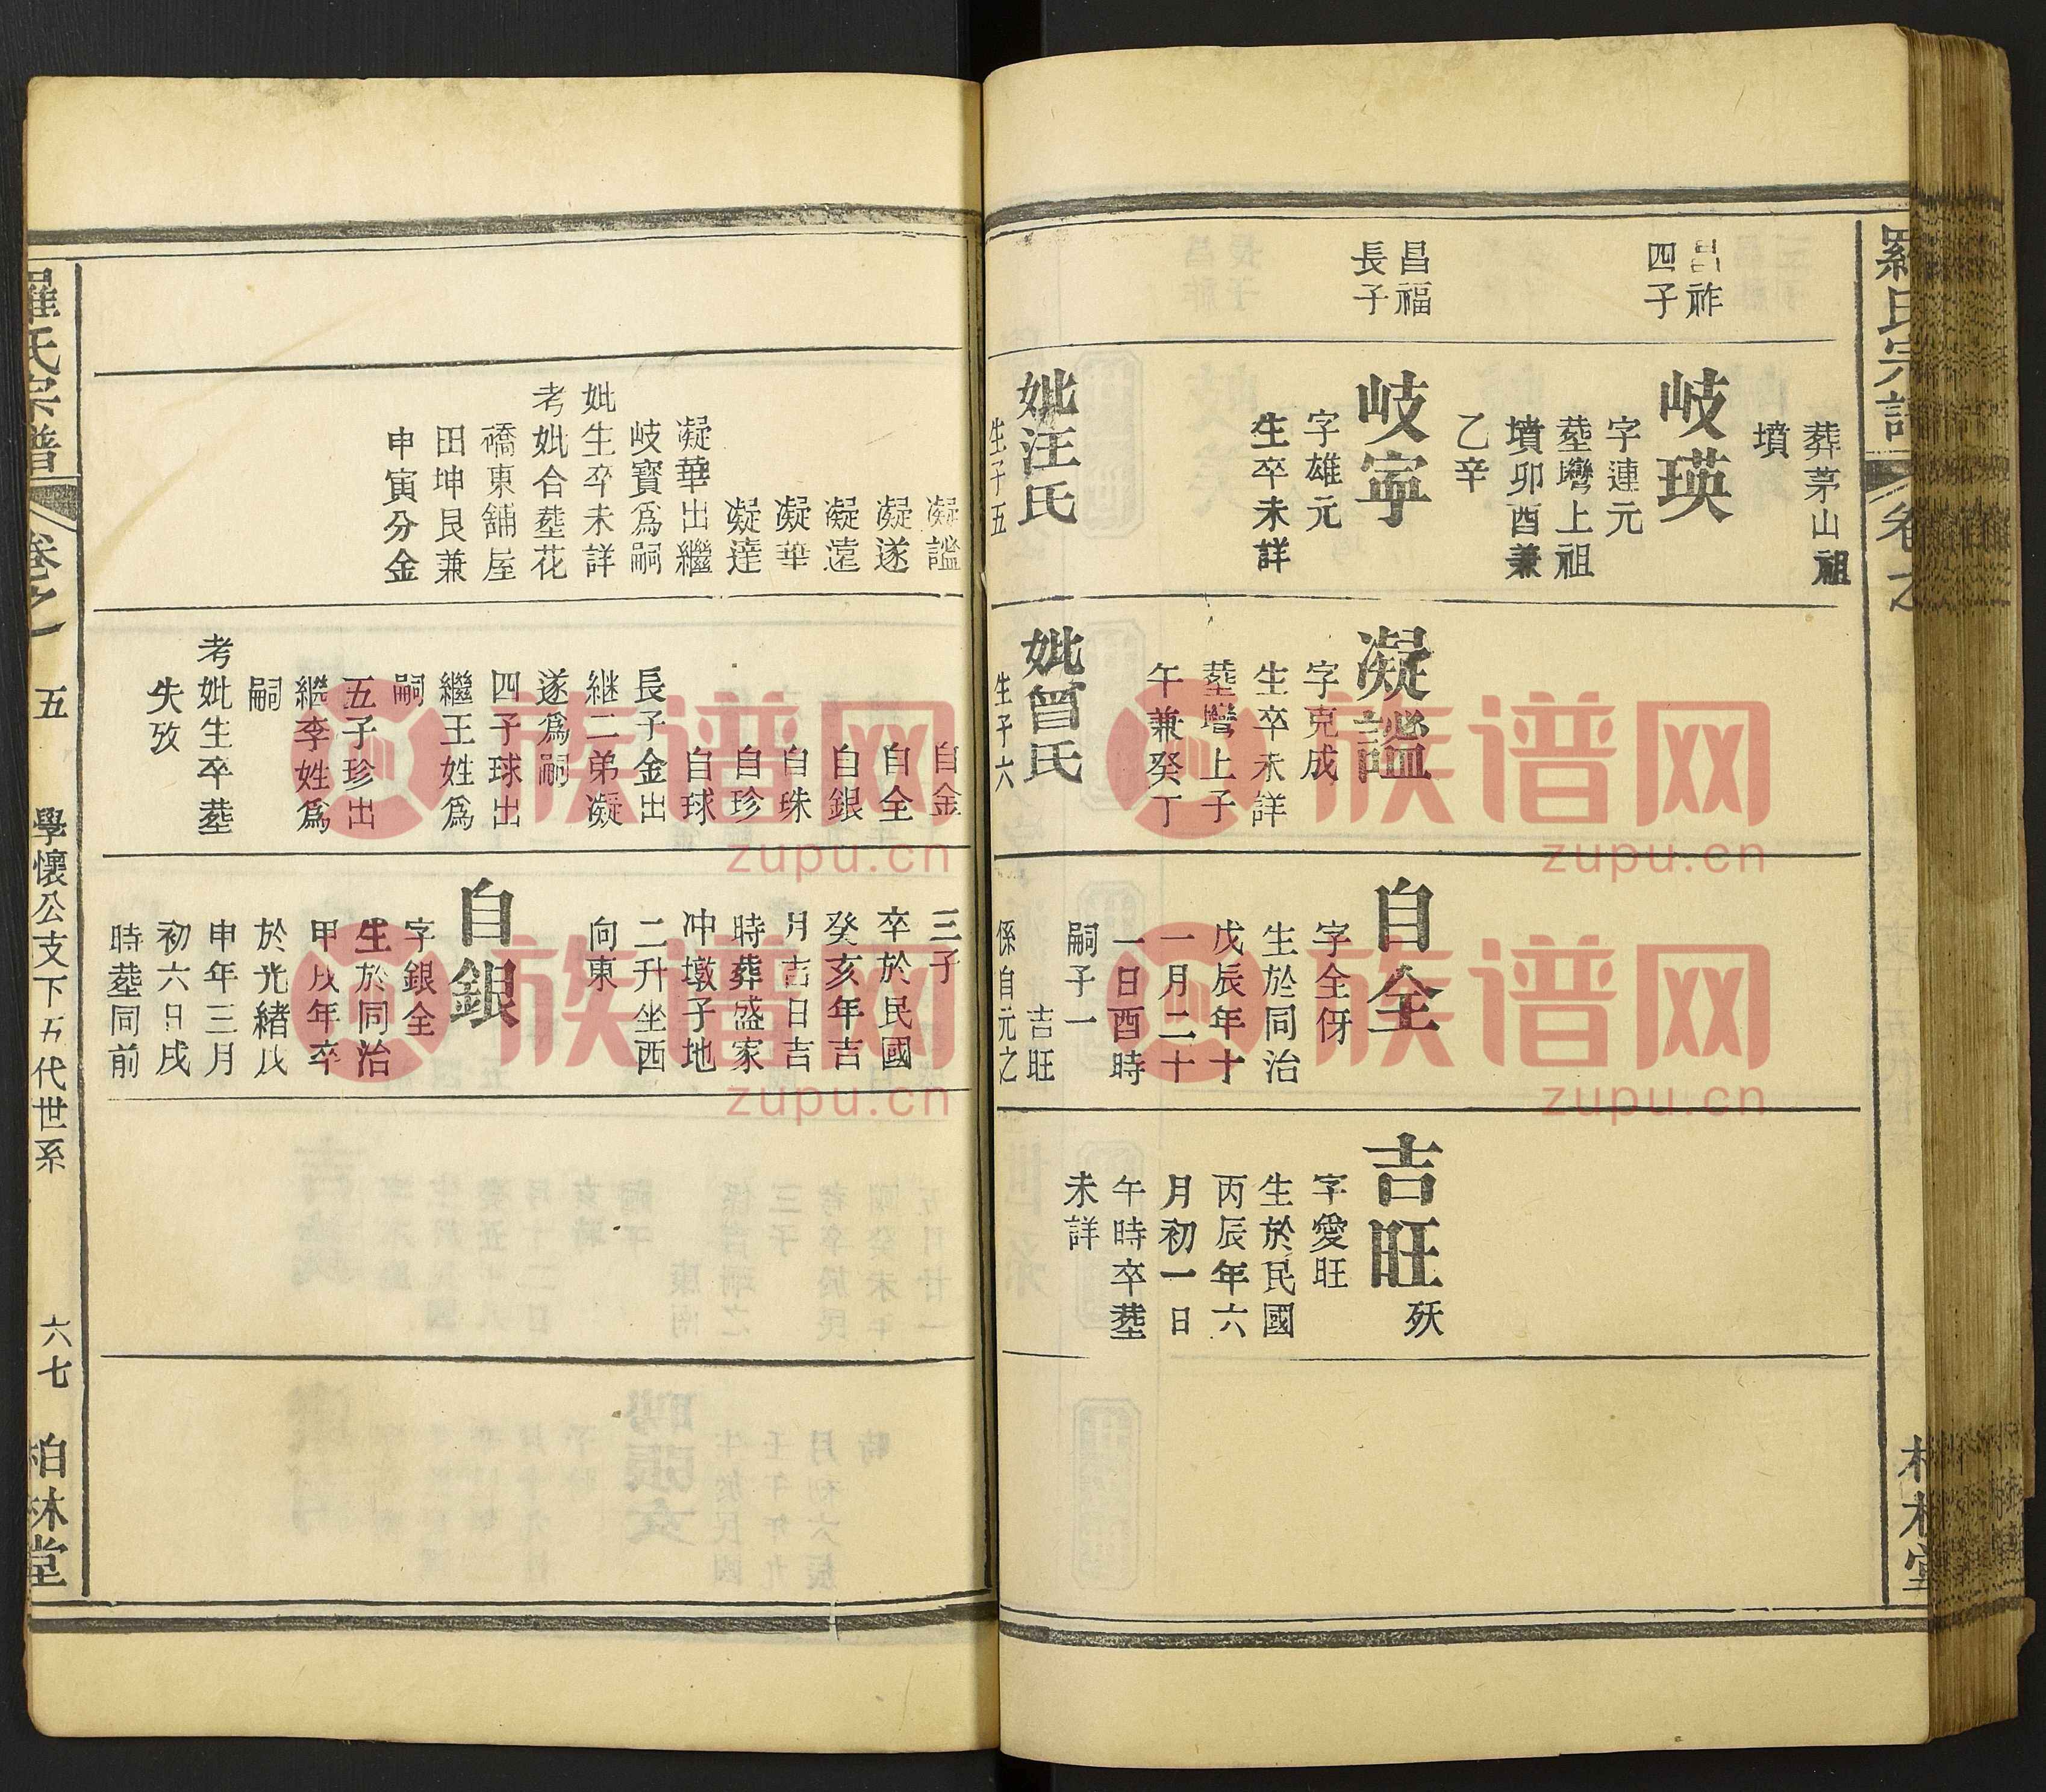 羅氏宗譜
卷之
昌祚
四子
昌福
長子
葬茅山祖
墳
岐瑛
字連元
塟塆上祖
墳卯酉兼
乙辛
岐寜
字雄元
生卒未詳
妣汪氏
生子五
凝謐
字克成
生卒未詳
塟塆上子
午兼癸丁
妣曾氏
生子六
自全
字全伢
生於同治
戊辰年十
一月二十
一日酉時
嗣子一
吉旺
係自元之
吉旺
殀
字愛旺
生於民國
丙辰年六
月初一日
午時卒塟
未詳
凝謐
凝遂
凝遠
凝華
凝達
凝華出繼
岐寶爲嗣
妣生卒未詳
考妣合塟花
礄東舖屋
田坤艮兼
申寅分金
自金
自全
自銀
自珠
自珍
自球
長子金出
継二弟凝
遂爲嗣
四子球出
繼王姓爲
嗣
五子珍出
繼李姓爲
嗣
考妣生卒塟
失攷
三子
卒於民國
癸亥年吉
月吉日吉
時葬盛家
冲墩子地
二升坐西
向東
自銀
字銀全
生於同治
甲戌年卒
於光緒戊
申年三月
初六日戌
時塟同前
羅氏宗譜
卷之一
五
學懷公支下五代世系
六七
柏林堂
族谱网
zupu.cn
族谱网
zupu.cn
族谱网
zupu.cn
族谱网
zupu.cn